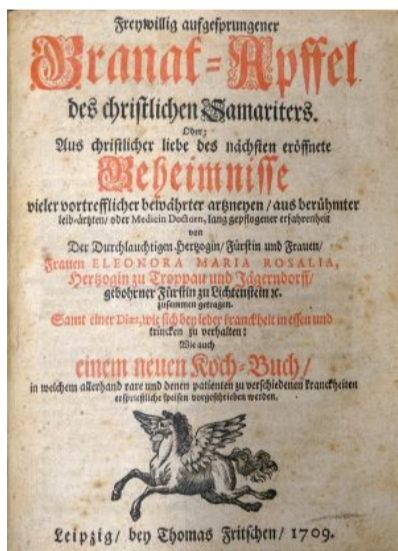 Freywillig aufgesprungener
Granat=Apffel
des christlichen Samariters.
Oder;
Aus christlicher liebe des nächsten eröffnete
Geheimnisse
vieler vortrefflicher bewährter artzneyen / aus berühmter
leib-ärtzten / oder Medicin Doctorn, lang gepflogener erfahrenheit
von
Der Durchlauchtigen Hertzogin / Fürstin und Frauen /
Frauen ELEONORA MARIA ROSALIA,
Hertzogin zu Troppau und Jägerndorff /
gebohrner Fürstin zu Lichtenstein ꝛc.
zusammen getragen.
Samt einer Diæt, wie sich bey jeder kranckheit in essen und
trincken zu verhalten:
Wie auch
einem neuen Koch-Buch /
in welchem allerhand rare und denen patienten zu verschiedenen kranckheiten
ersprießliche speisen vorgeschrieben werden.
Leipzig / bey Thomas Fritschen / 1709.